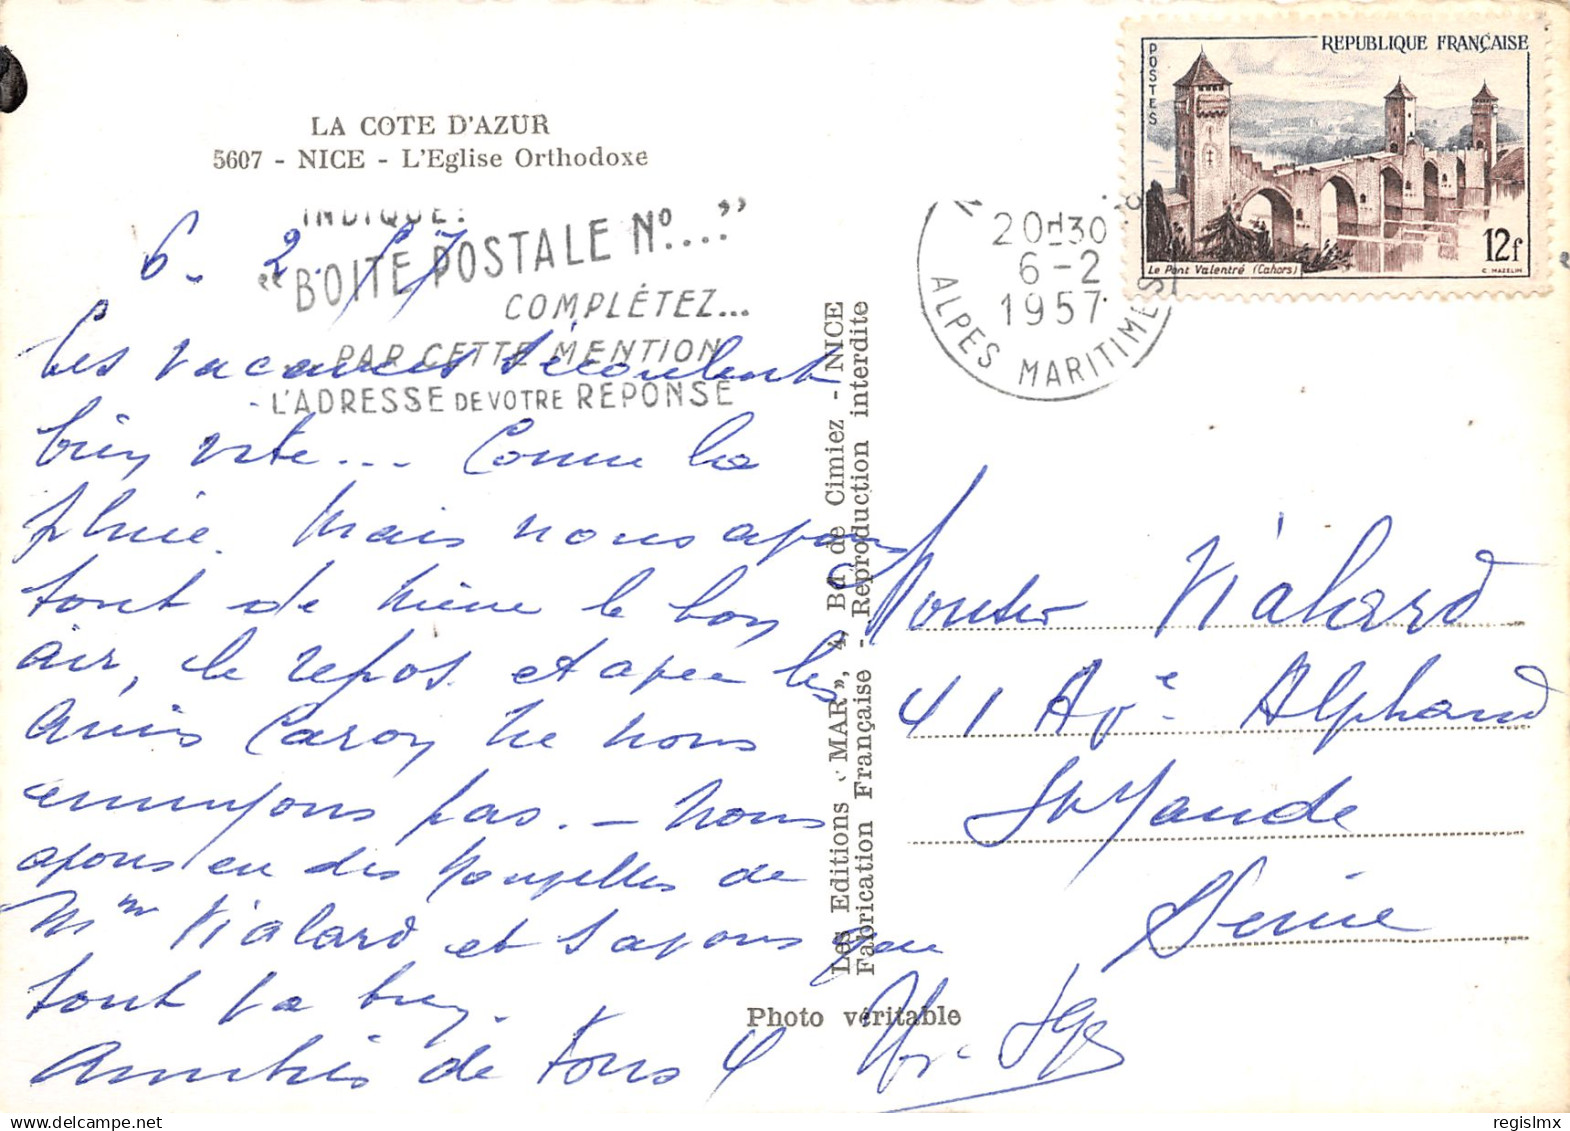 LA COTE D'AZUR
5607 - NICE - L'Eglise Orthodoxe
INDIQUE:
"BOITE POSTALE No...."
COMPLÉTEZ...
PAR CETTE MENTION
L'ADRESSE DE VOTRE REPONSE
REPUBLIQUE FRANÇAISE
POSTES
12f
Le Pont Valentré (Cahors)
C. MAZELIN
20H30
6-2
1957
ALPES MARITIMES
6. 2. 57
Les vacances s'écoulent
bien vite... Comme la
pluie. Mais nous avons
tout de même le bon
air, le repos. et avec les
amis Caron ne nous
ennuyons pas. - Nous
avons eu des nouvelles de
Mme Vialard et savons que
tout va bien.
Amitiés de tous 4
Les Editions "MAR", 4, Bd de Cimiez - NICE
Fabrication Française - Reproduction interdite
Photo véritable
Monsieur Vialard
41 Ave Alphand
St Mande
Seine
regislmx